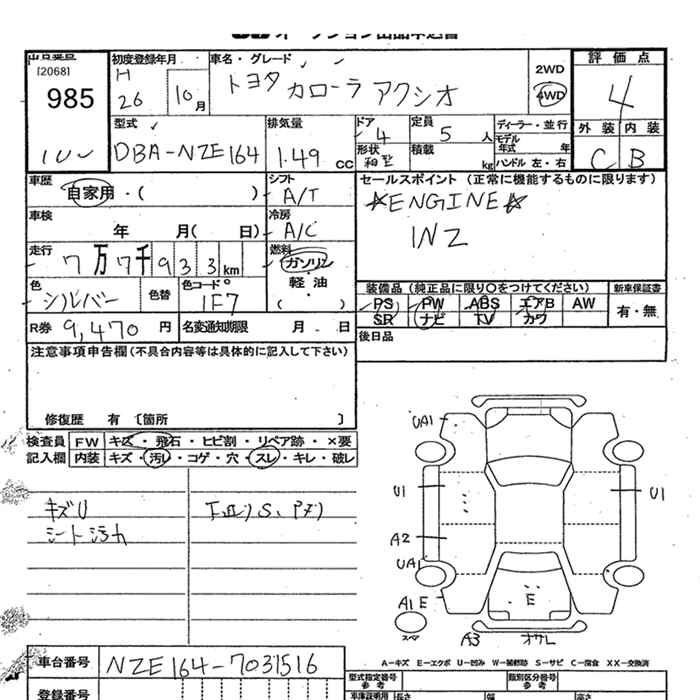 出品番号 初度登録年月 車名・グレード 評価点
[2068]
985
H 26 10月
トヨタ カローラ アクシオ
2WD
4WD
4
型式 排気量 ドア 定員 ディーラー・並行 外装 内装
DBA-NZE164 1.49 CC 4 5人 モデル年式 年
形状 積載 kg ハンドル 左・右 C B
車歴 シフト セールスポイント (正常に機能するものに限ります)
自家用・( ) A/T ☆ENGINE☆
車検 冷房 1NZ
年 月( 日) A/C
走行 燃料
7万7千933km ガソリン
軽油
( )
色 色替 色コード 装備品 (純正品に限り○をつけてください) 新車保証書
シルバー 1F7 PS PW ABS エアB AW 有・無
SR ナビ TV カワ
R券 9,470円 名変通知期限 月 日 後日品
注意事項申告欄(不具合内容等は具体的に記入して下さい)
修復歴 有 〔箇所 〕
検査員 FW キズ・飛石・ヒビ割・リペア跡・×要
記入欄 内装 キズ・汚れ・コゲ・穴・スレ・キレ・破レ
キズU
シート汚れ
UA1
U1 U1
A2
UA1
A1 E E
スペア
A3 オサレ
A-キズ E-エクボ U-凹み W-補修跡 S-サビ C-腐食 XX-交換済
車台番号 NZE164-7031516
型式指定番号 類別区分番号
参考 参考
登録番号 長さ 幅 高さ